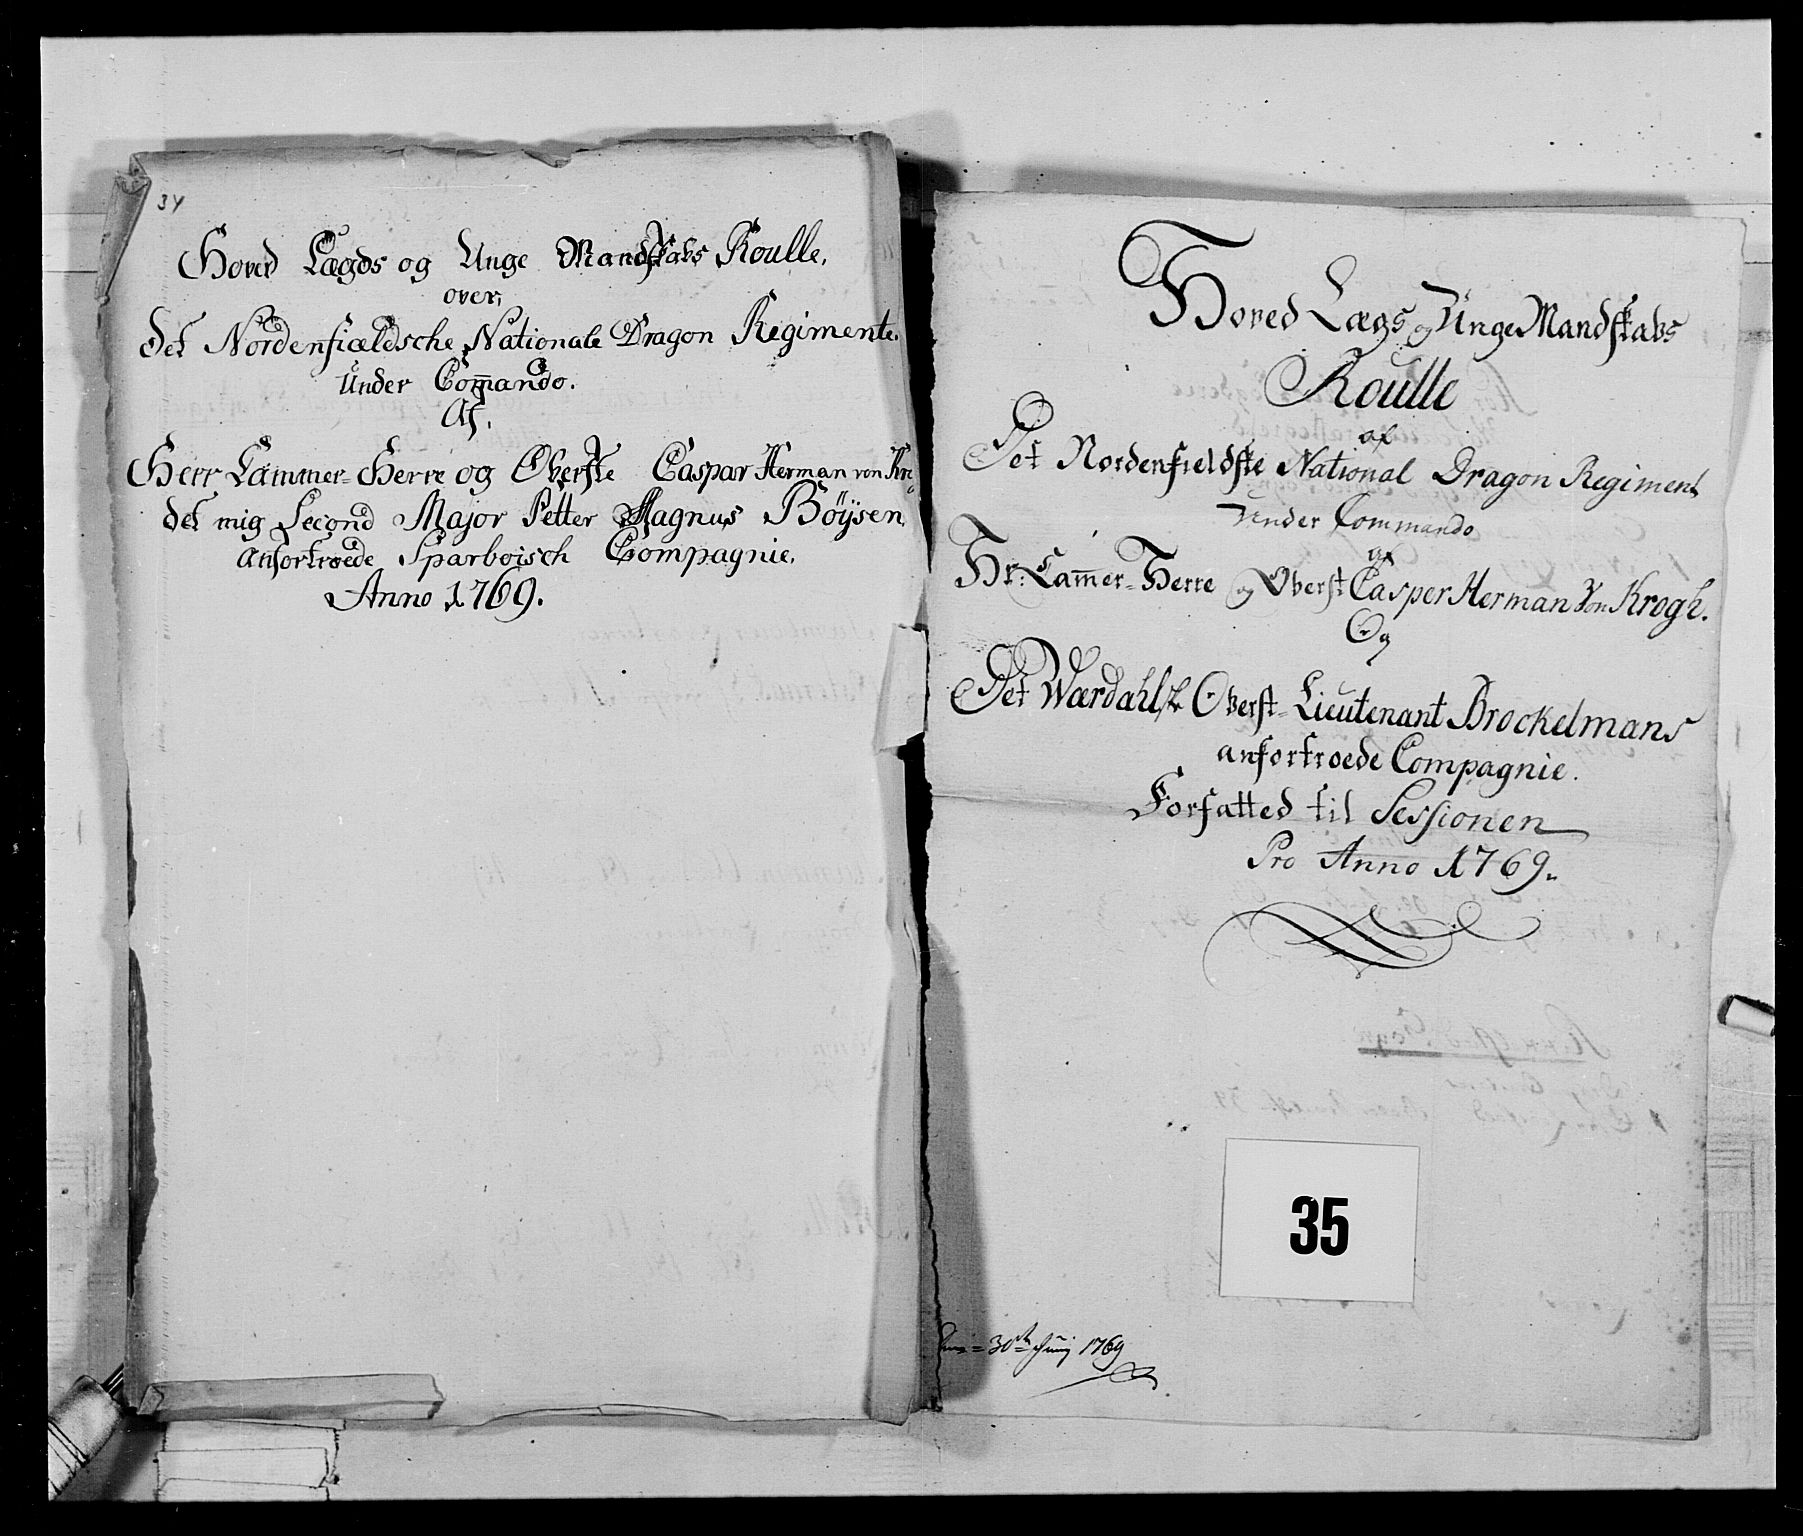 34
Hoved Lægds og Unge Mandskabs Roulle,
over,
det Nordenfieldsche Nationale Dragon Regimente.
Under Com̄ando.
Af.
Herr Cammer=Herre og Oberste Caspar Herman von Kro
det mig Second Major Petter Magnus Böÿsen,
anfortroede Sparboisch Compagnie.
Anno 1769.
Hoved Lægs og Unge Mandskabs
Roulle
af
Det Nordenfieldske National Dragon Regiment
Under Commando
af
Hr: Cam̄er=Herre og Oberst Casper Herman Von Krogh.
Og
Det Wærdahlske Oberst=Lieutenant Brockelmans
anfortroede Compagnie.
Forfatted til Sessionen
Pro Anno 1769.
35
30te Junij 1769